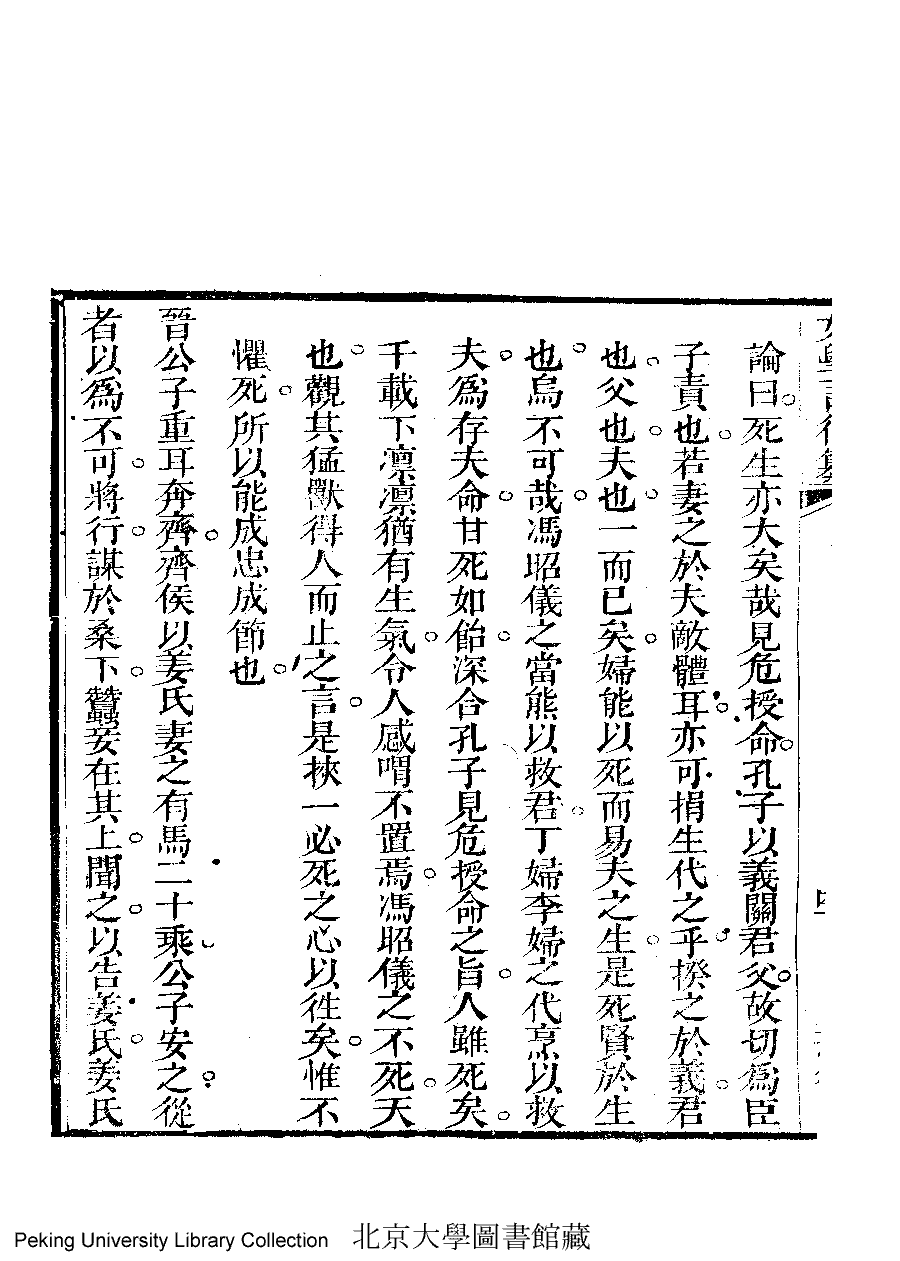 論曰死生亦大矣哉見危授命孔子以義關君父故切爲臣
子責也若妻之於夫敵體耳亦可捐生代之乎揆之於義君
也父也夫也一而已矣婦能以死而易夫之生是死賢於生
也烏不可哉馮昭儀之當熊以救君丁婦李婦之代烹以救
夫爲存夫命甘死如飴深合孔子見危授命之旨人雖死矣
千載下凛凛猶有生氣令人感喟不置焉馮昭儀之不死天
也觀其猛獸得人而止之言是挾一必死之心以徃矣惟不
懼死所以能成忠成節也
晉公子重耳奔齊齊侯以姜氏妻之有馬二十乘公子安之從
者以爲不可將行謀於桑下蠶妾在其上聞之以告姜氏姜氏
Peking University Library Collection 北京大學圖書館藏